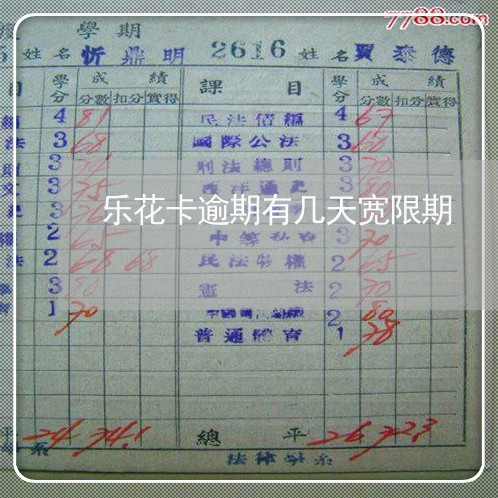 7788.com
學期
姓名 忻鼎明 2616 姓名 賈泰德
目 學分 成績 課目 學分 成績
分數 扣分 實得 分數 扣分 實得
4 81 民法債編 4 67
法 3 68 國際公法 3 60
3 刑法總則 3 70
3 75 西洋通史 3 80
乐花卡逾期有几天宽限期
2 65 3 70
法 2 68 68 民法物權 2 65
3 80 憲法 2 70
1 70 2 80
普通體育 1 78
平 24 74.1 總平 26 72.3
系 法律學系